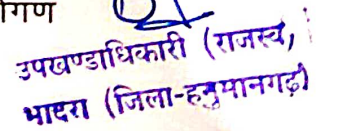 गिण
उपखण्डाधिकारी (राजस्व,
भादरा (जिला-हनुमानगढ़)